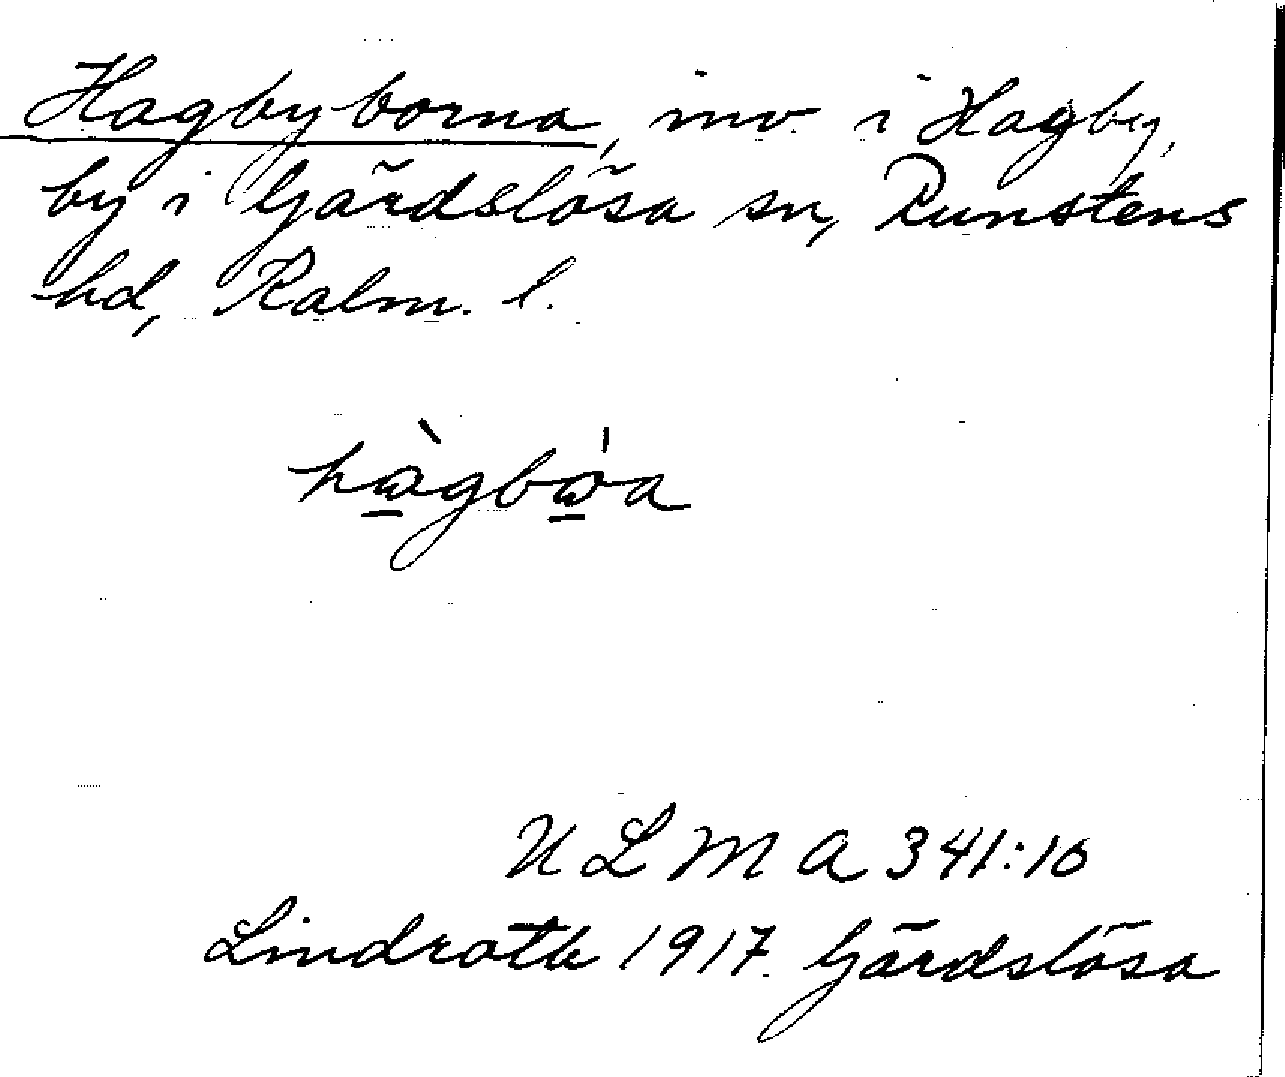 Hagbyborna, inv. i Hagby,
by i Gärdslösa sn, Runstens
hd, Kalm. l.
hàgbo'a
ULMA 341:10
Lindroth 1917. Gärdslösa